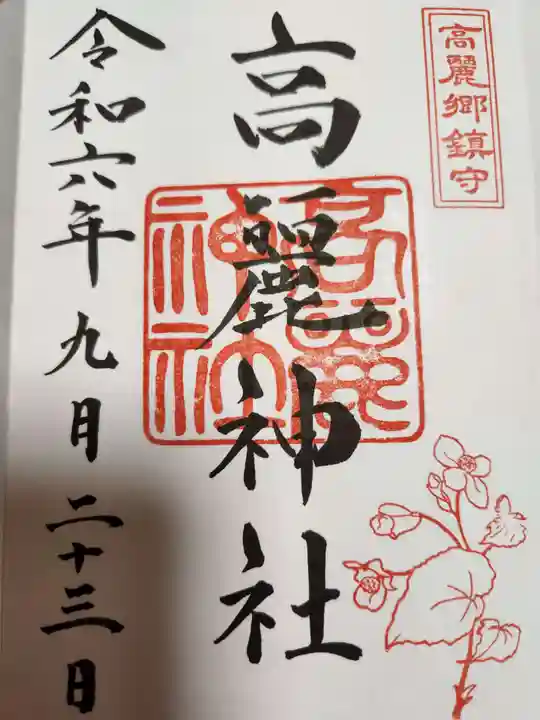 高麗郷鎮守
高麗神社
令和六年九月二十三日